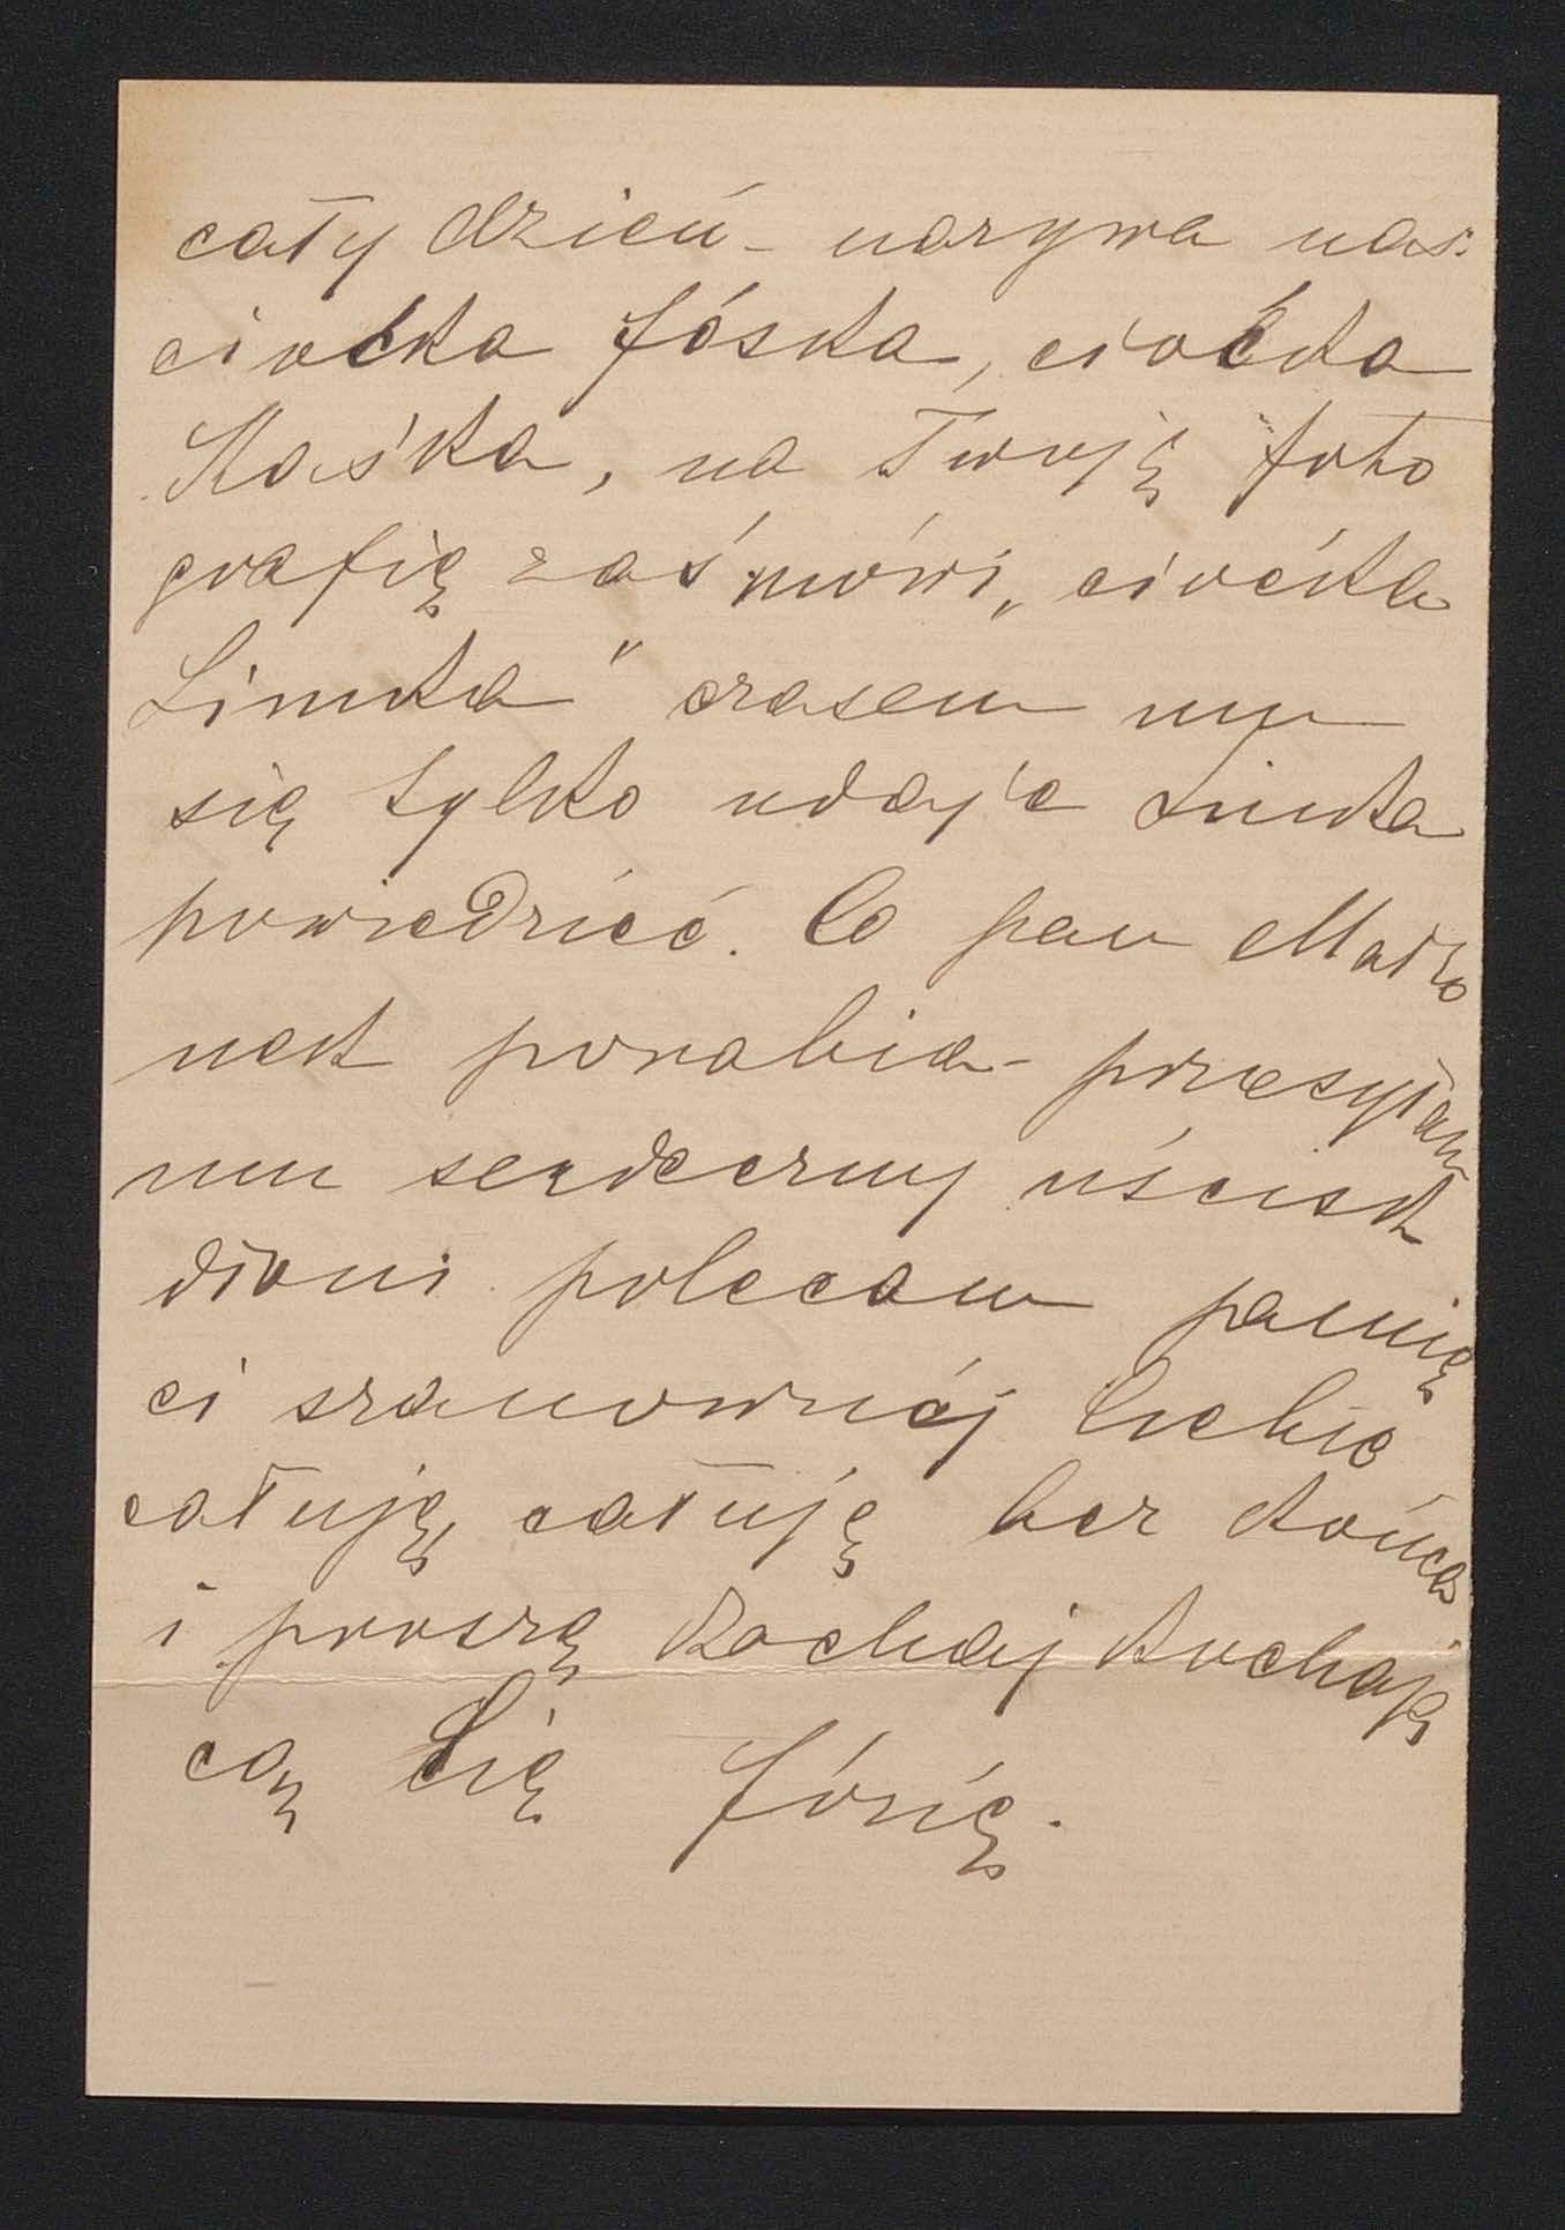 cały dzień - nazywa nas:
cioćka Jóśka, cioćka
Kaśka, na Twoję foto
grafię zaś mówi „cioćka
Linuka" czasem mu
się tylko udaje Linka
powiedzieć. Co pan Małżo
nek porabia - przesyłam
mu serdeczny uścisk
dłoni polecam pamię
ci szanownéj Ciebie
całuję, całuję bez końca
i proszę kochaj kochają
cą Cię Józię.